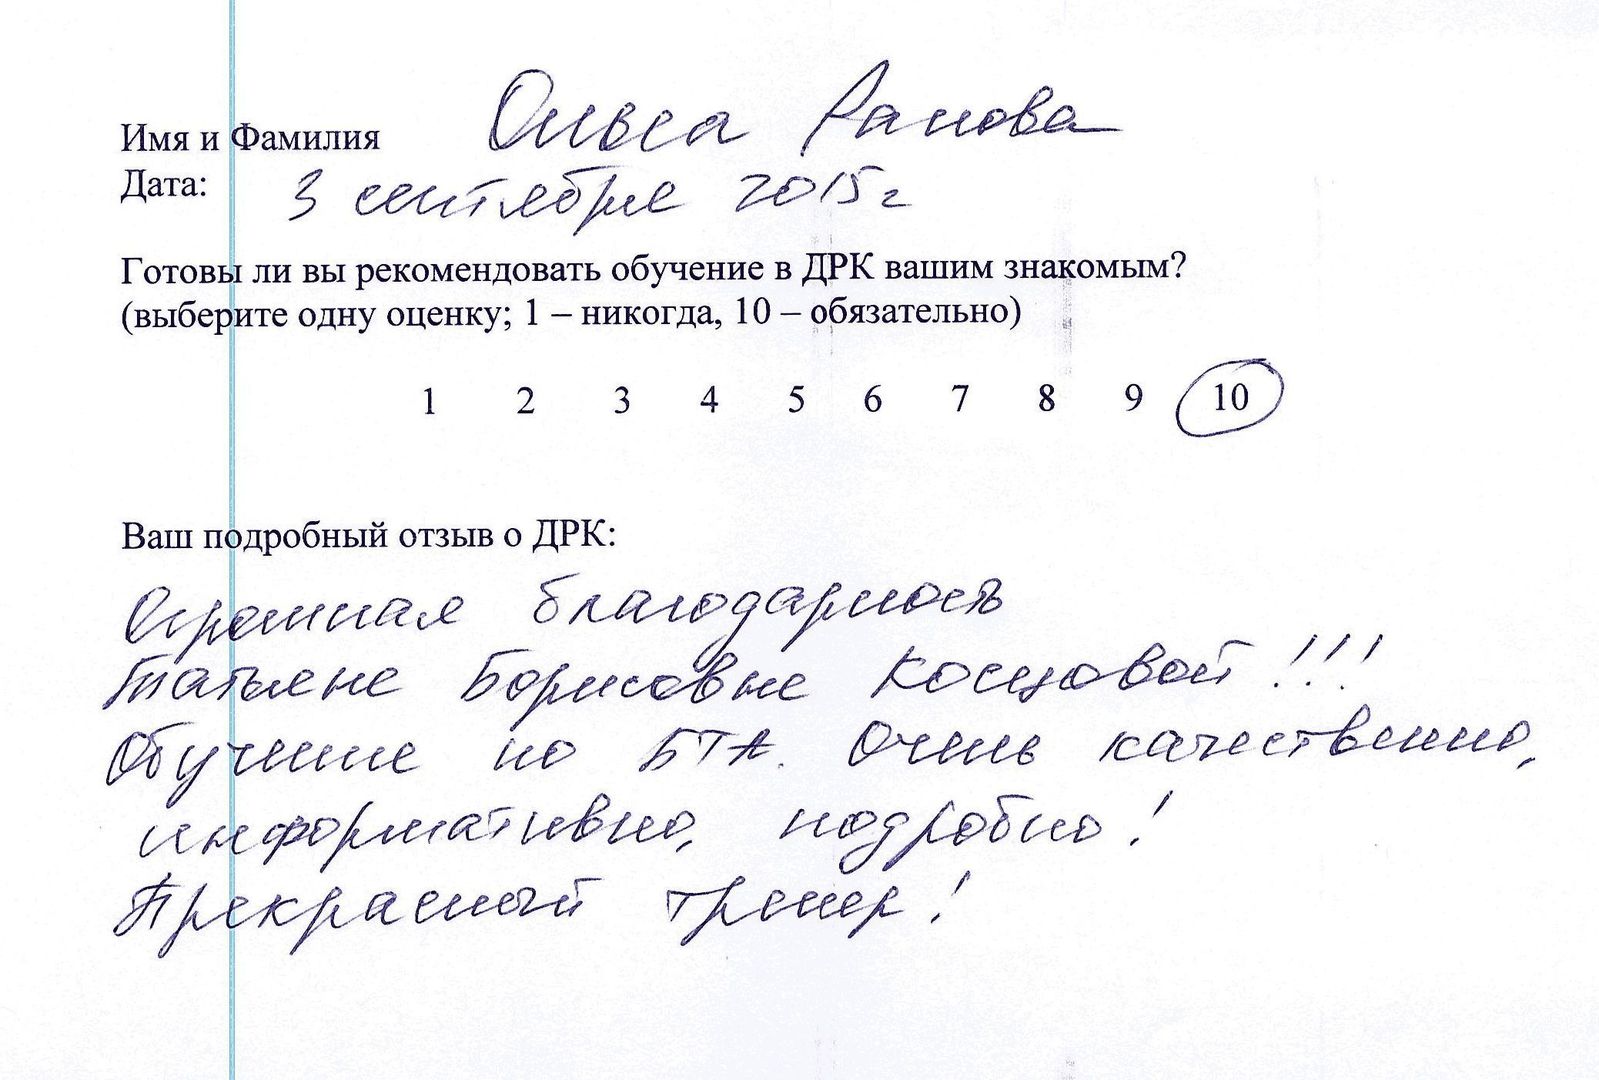 Имя и Фамилия Ольга Ранова
Дата: 3 сентября 2015г
Готовы ли вы рекомендовать обучение в ДРК вашим знакомым?
(выберите одну оценку; 1 – никогда, 10 – обязательно)
1 2 3 4 5 6 7 8 9 10
Ваш подробный отзыв о ДРК:
Огромная благодарность
Татьяне Борисовне Косцовой!!!
Обучение по БТА. Очень качественно,
информативно, подробно!
Прекрасный тренер!